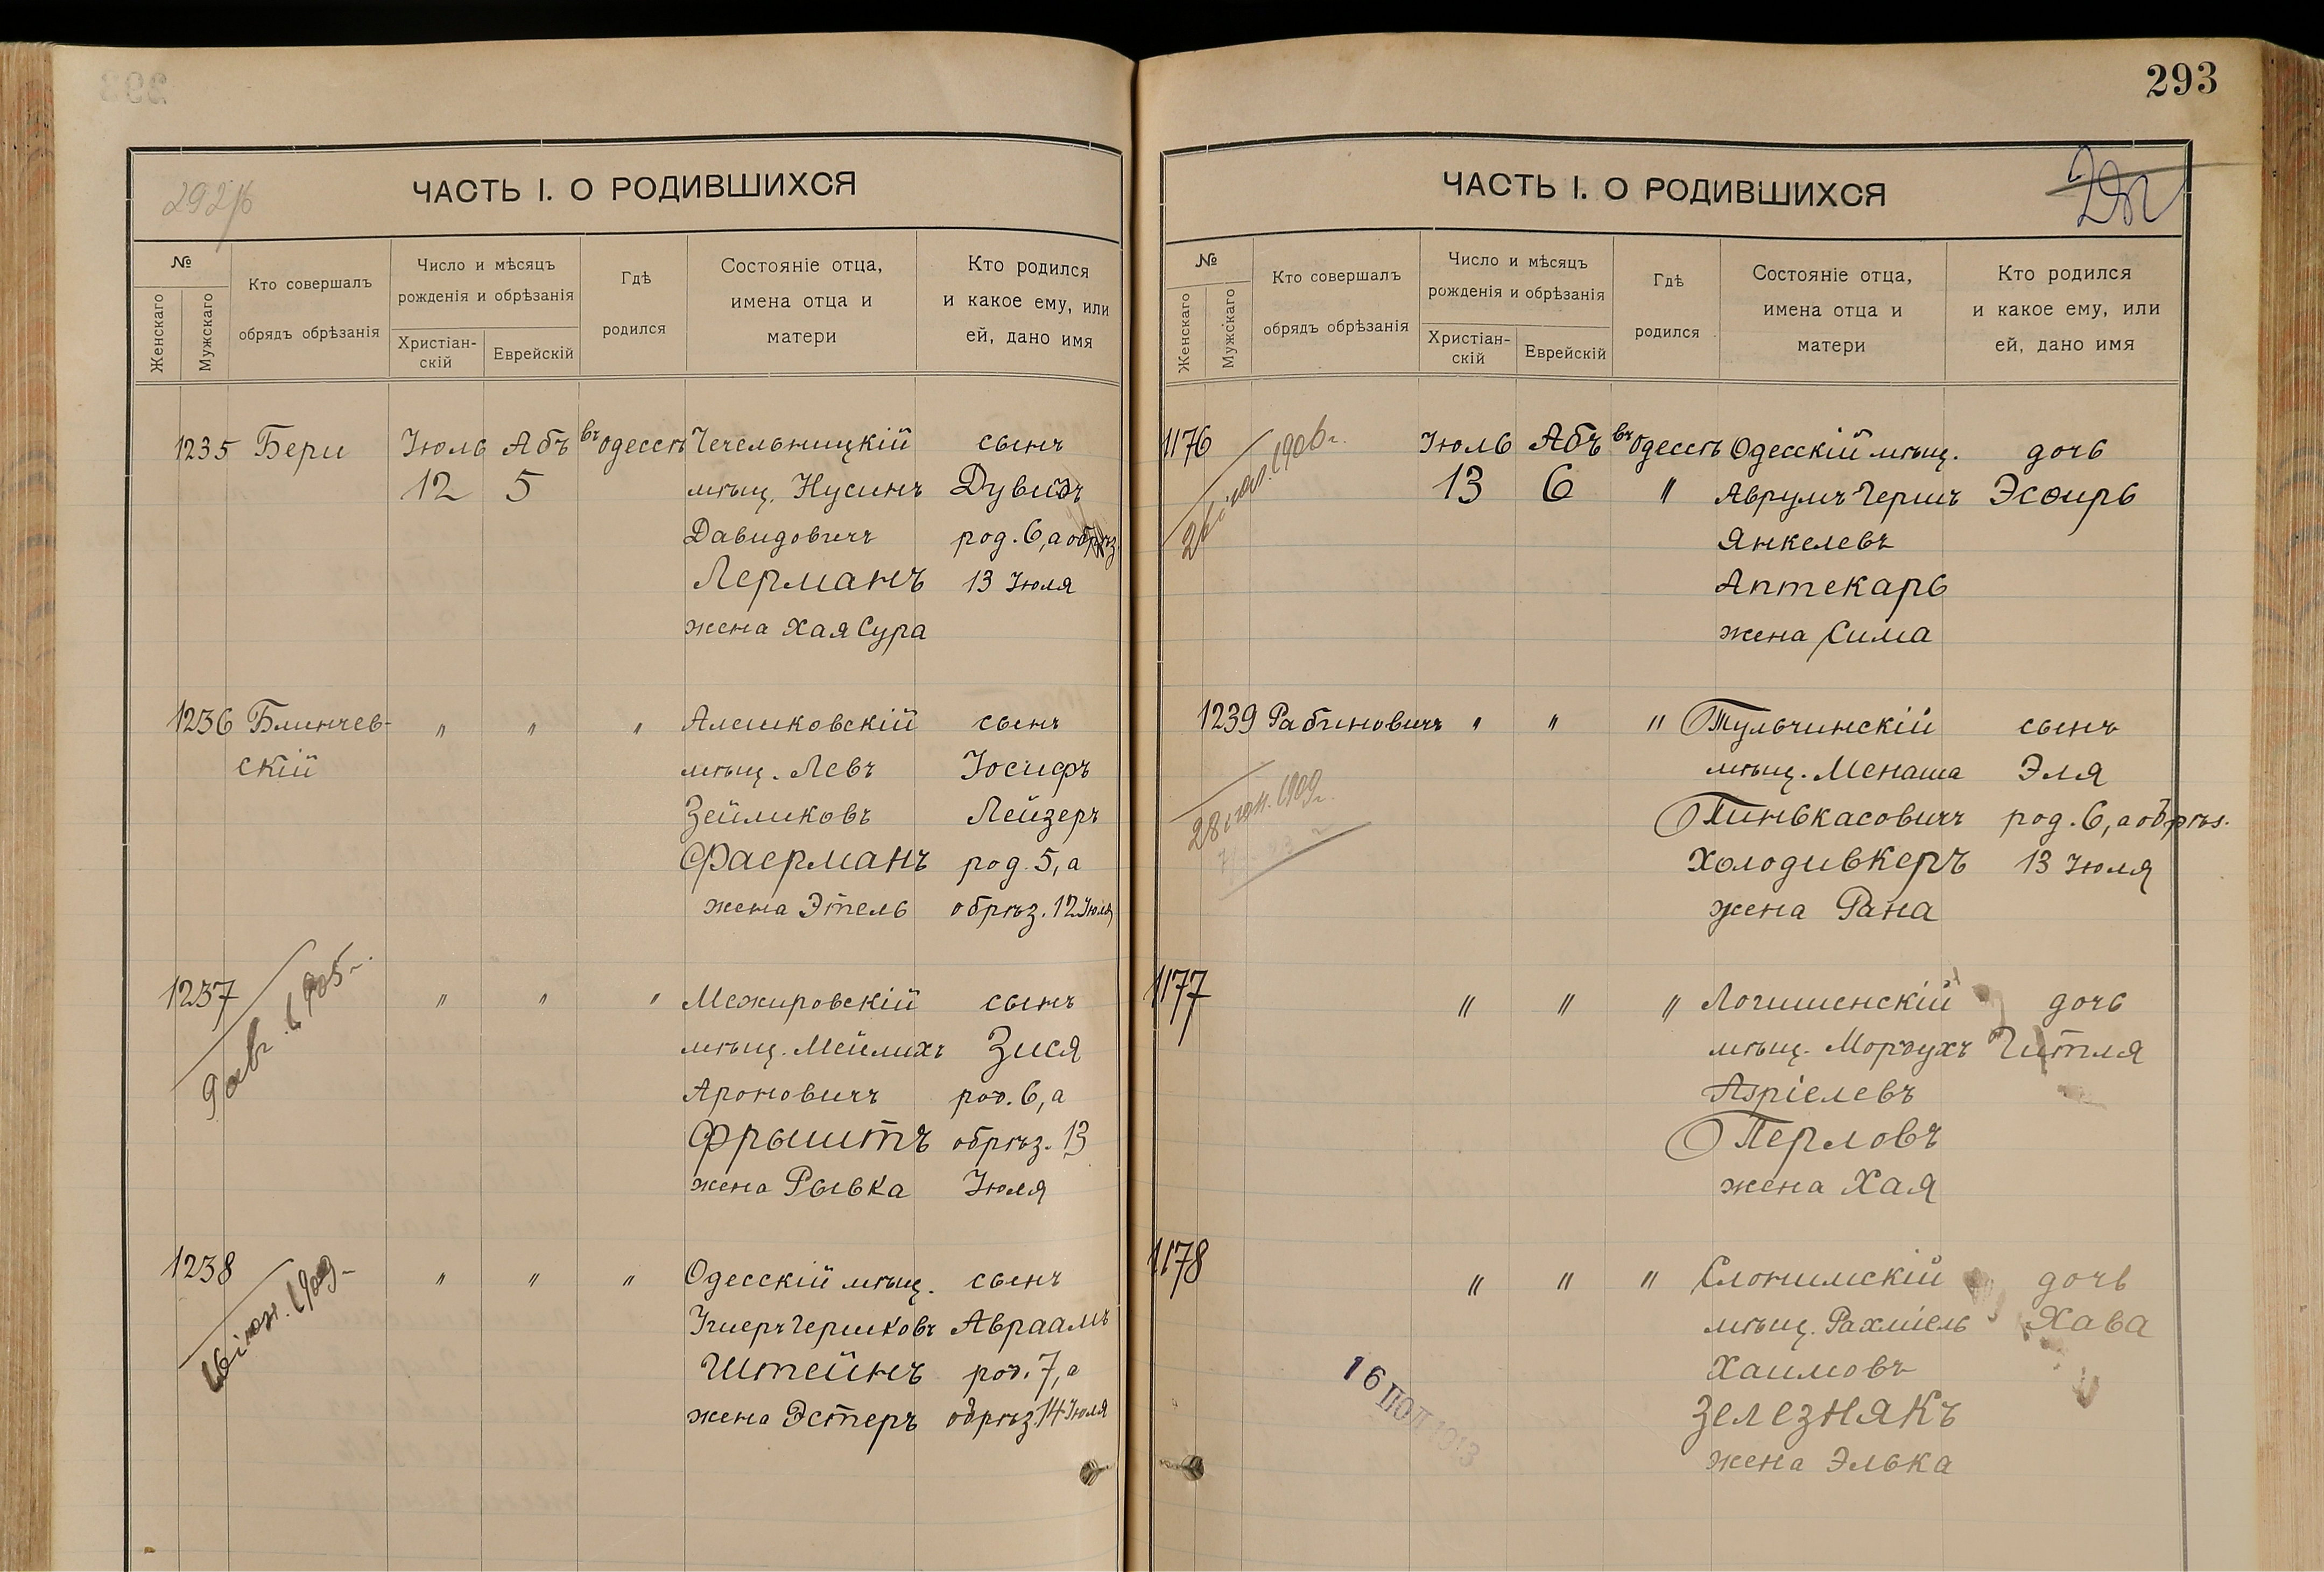 293
ЧАСТЬ I. О РОДИВШИХСЯ
№
Женскаго
Мужскаго
Кто совершалъ
обрядъ обрѣзанія
Число и мѣсяцъ
рожденія и обрѣзанія
Христіан-
скій
Еврейскій
Гдѣ
родился
Состояніе отца,
имена отца и
матери
Кто родился
и какое ему, или
ей, дано имя
1235 Бери Іюль Абъ въ Одессѣ Чечельницкій сынъ
12 5 мѣщ. Нусинъ Дувидъ
Давидовичъ род. 6, а обрѣз.
Лерманъ 13 Іюля
жена Хая Сура
1236 Блинчев- " " " Алешковскій сынъ
скій мѣщ. Левъ Іосифъ
Зейликовъ Лейзеръ
Фаерманъ род. 5, а
жена Этель обрѣз. 12 Іюля
1237 " " " Межировскій сынъ
9 авг. 1905 г.
мѣщ. Мейлихъ Зися
Ароновичъ род. 6, а
Фрыштъ обрѣз. 13
жена Рывка Іюля
1238 " " " Одесскій мѣщ. сынъ
1909
Ишеръ Гершковъ Авраамъ
Штейнъ род. 7, а
жена Эстеръ обрѣз. 14 Іюля
ЧАСТЬ I. О РОДИВШИХСЯ
№
Женскаго
Мужскаго
Кто совершалъ
обрядъ обрѣзанія
Число и мѣсяцъ
рожденія и обрѣзанія
Христіан-
скій
Еврейскій
Гдѣ
родился
Состояніе отца,
имена отца и
матери
Кто родился
и какое ему, или
ей, дано имя
1176 Іюль Абъ въ Одессѣ Одесскій мѣщ. дочь
1906 г.
13 6 " Аврумъ Гершъ Эсѳирь
Янкелевъ
Аптекарь
жена Сима
1239 Рабиновичъ " " " Тульчинскій сынъ
мѣщ. Менаша Эля
28 1909 г.
Пинькасовичъ род. 6, а обрѣз.
Холодивкеръ 13 Іюля
жена Рана
1177 " " " Логишенскій дочь
мѣщ. Мордухъ Гитля
Азріелевъ
Перловъ
жена Хая
1178 " " " Слонимскій дочь
мѣщ. Рахміель Хава
Хаимовъ
16 1913
Зелезнякъ
жена Элька